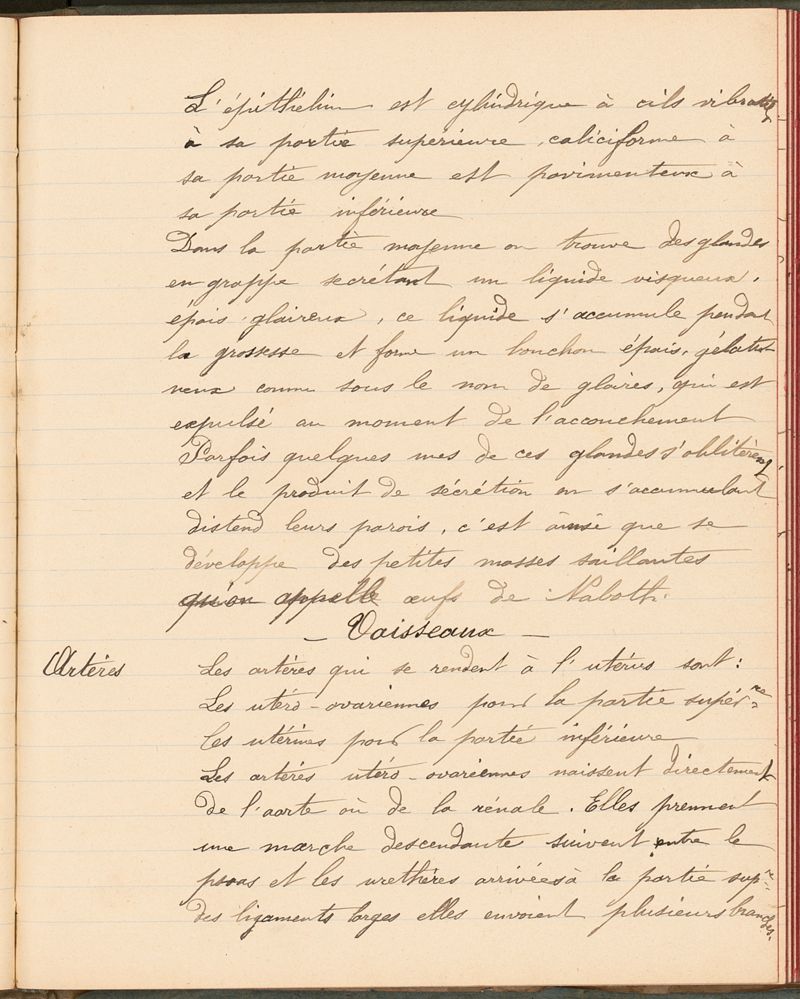 L'épithélium est cylindrique à cils vibratils
à sa partie supérieure, caliciforme à
sa partie moyenne est pavimenteux à
sa partie inférieure
Dans la partie moyenne on trouve des glandes
en grappe secrétant un liquide visqueux,
épais, glaireux, ce liquide s'accumule pendant
la grossesse et forme un bouchon épais, gélati-
neux connu sous le nom de glaires, qui est
expulsé au moment de l'accouchement
Parfois quelques unes de ces glandes s'oblitèrent
et le produit de sécrétion en s'accumulant
distend leurs parois, c'est ainsi que se
développe des petites masses saillantes
qu'on appelle œufs de Naboth.
— Vaisseaux —
Artères Les artères qui se rendent à l'utérus sont:
Les utéro-ovariennes pour la partie supér=re
les utérines pour la partie inférieure
Les artères utéro-ovariennes naissent directement
de l'aorte où de la rénale. Elles prennent
une marche descendante suivent entre le
psoas et les urethères arrivées à la partie sup=re
des ligaments larges elles envoient plusieurs branches.